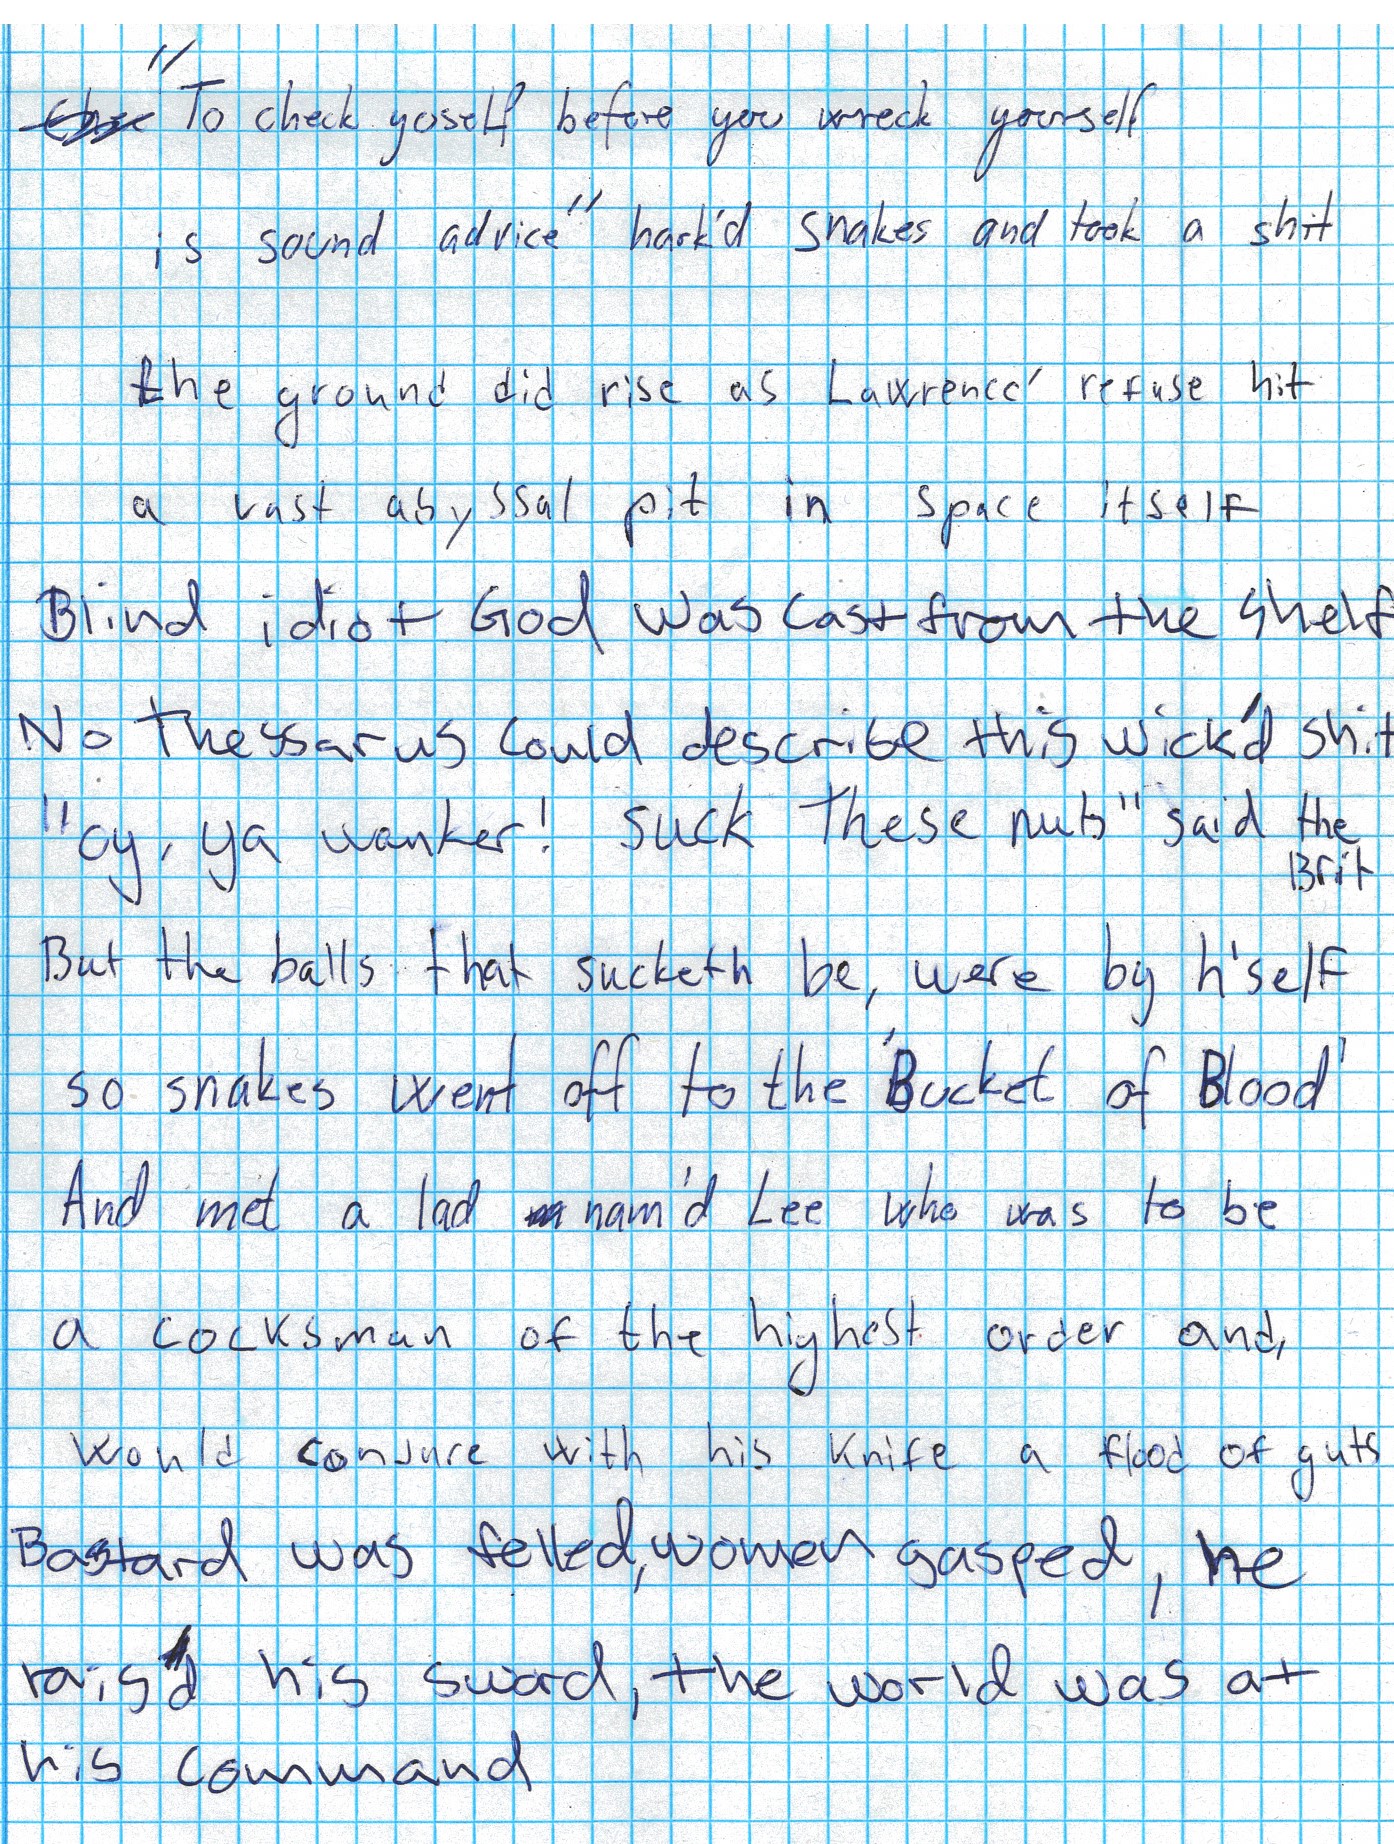 "To check yoself before you wreck yourself
is sound advice" hark'd snakes and took a shit
the ground did rise as Lawrence' refuse hit
a vast abyssal pit in space itself
Blind idiot God was cast from the shelf
No Thessarus could describe this wick'd shit
"oy, ya wanker! suck these nuts" said the
Brit
But the balls that sucketh be, were by h'self
so snakes went off to the 'Bucket of Blood'
And met a lad nam'd Lee who was to be
a cocksman of the highest order and,
would conjure with his knife a flood of guts
Bastard was felled, women gasped, he
rais'd his sword, the world was at
his command